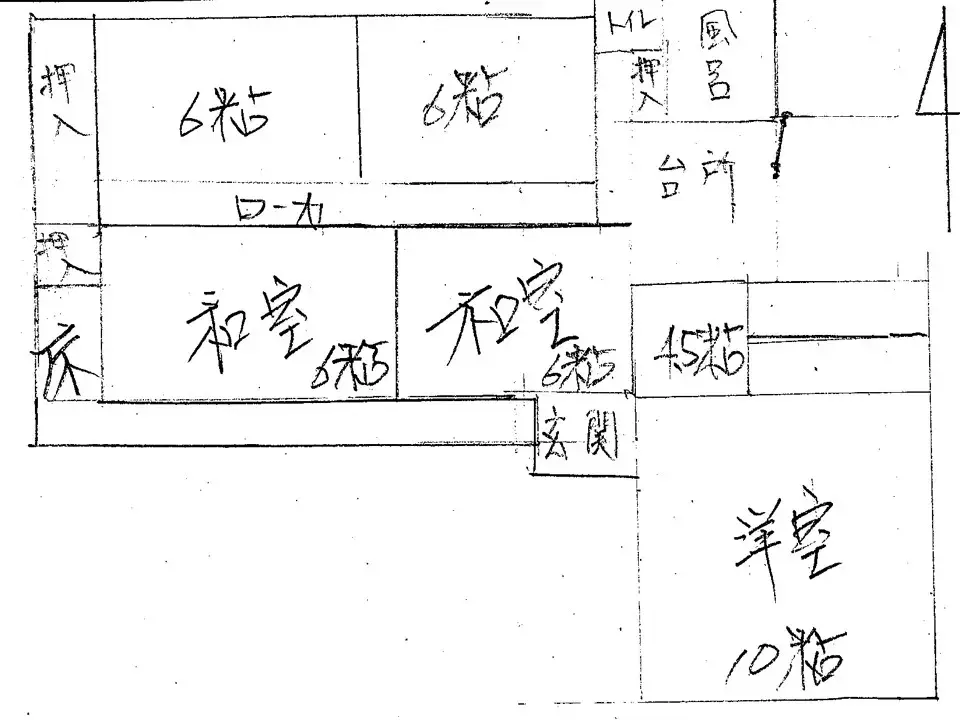 トイレ
風呂
押入
押入
6帖
6帖
台所
ローカ
押入
和室
6帖
和室
6帖
床
4.5帖
玄関
洋室
10帖